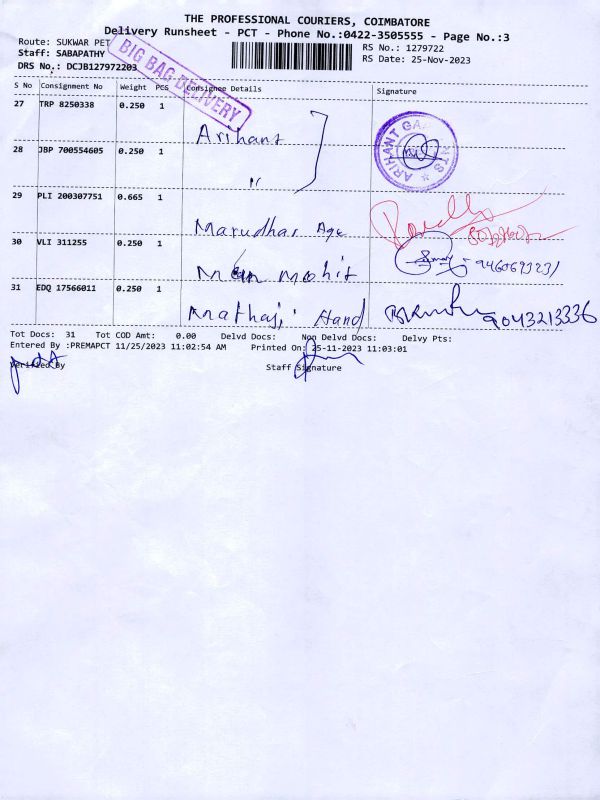 THE PROFESSIONAL COURIERS, COIMBATORE
Delivery Runsheet - PCT - Phone No.:0422-3505555 - Page No.:3
Route: SUKWAR PET
RS No.: 1279722
Staff: SABAPATHY
RS Date: 25-Nov-2023
DRS No.: DCJB127972203
BIG BAG DELIVERY
S No Consignment No Weight PCS Consignee Details Signature
27 TRP 8250338 0.250 1 Arihant
ARIHANT GARMENTS
28 JBP 700554605 0.250 1 "
29 PLI 200307751 0.665 1 Marudhar Age
30 VLI 311255 0.250 1 Man mohit
31 EDQ 17566011 0.250 1 Mathaji Hand 9043213336
Tot Docs: 31 Tot COD Amt: 0.00 Delvd Docs: Non Delvd Docs: Delvy Pts:
Entered By :PREMAPCT 11/25/2023 11:02:54 AM Printed On: 25-11-2023 11:03:01
Verified By Staff Signature